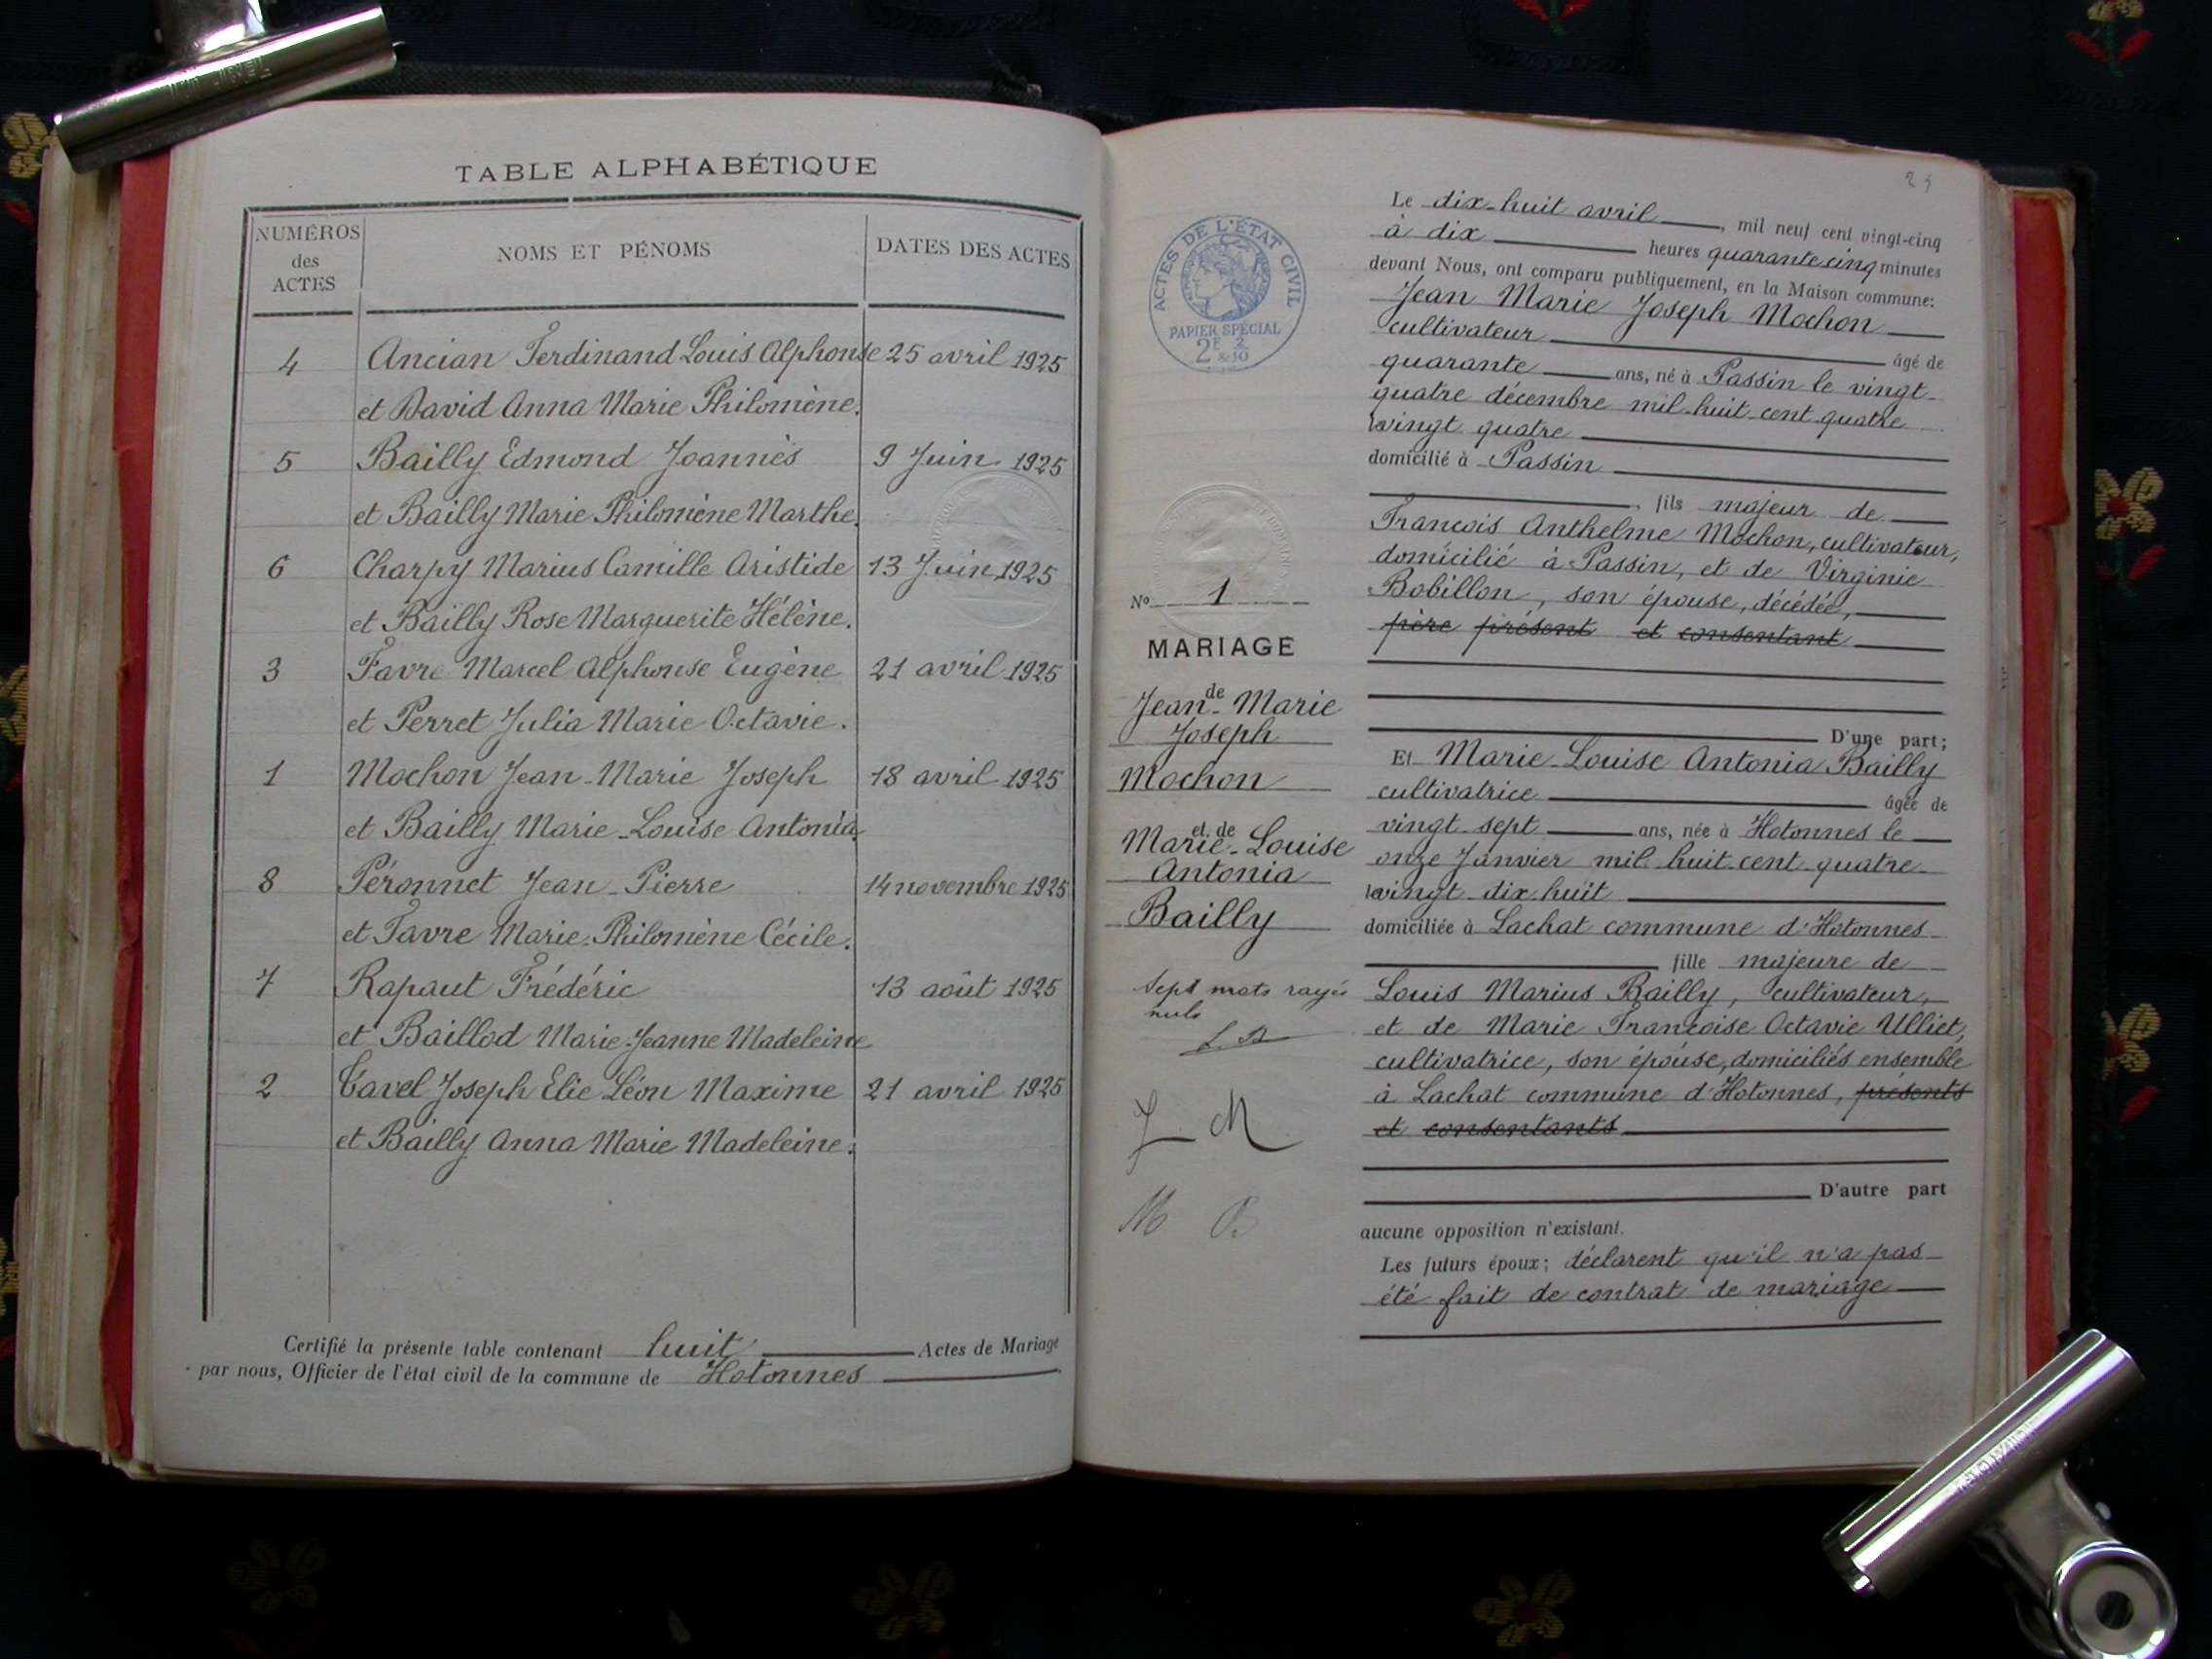 TABLE ALPHABÉTIQUE
NUMÉROS
des
ACTES
NOMS ET PÉNOMS
DATES DES ACTES
4 Ancian Ferdinand Louis Alphonse 25 avril 1925
et David Anna Marie Philomène.
5 Bailly Edmond Joannès 9 Juin 1925
et Bailly Marie Philomène Marthe.
6 Charpy Marius Camille Aristide 13 Juin 1925
et Bailly Rose Marguerite Hélène.
3 Favre Marcel Alphonse Eugène 21 avril 1925
et Perret Julia Marie Octavie.
1 Mochon Jean-Marie Joseph 18 avril 1925
et Bailly Marie-Louise Antonia.
8 Péronnet Jean-Pierre 14 novembre 1925
et Favre Marie-Philomène Cécile.
7 Rapaut Frédéric 13 août 1925
et Baillod Marie-Jeanne Madeleine
2 Tavel Joseph Elie Léon Maxime 21 avril 1925
et Bailly Anna Marie Madeleine.
Certifié la présente table contenant huit Actes de Mariage
par nous, Officier de l'état civil de la commune de Hotonnes
24
ACTES DE L'ÉTAT CIVIL
PAPIER SPÉCIAL
2F 2
&10
No 1
MARIAGE
de
Jean-Marie
Joseph
Mochon
et de
Marie-Louise
Antonia
Bailly
Sept mots rayés
nuls
L. B
J. M.
M B
Le dix-huit avril, mil neuf cent vingt-cinq
à dix heures quarante cinq minutes
devant Nous, ont comparu publiquement, en la Maison commune:
Jean Marie Joseph Mochon
cultivateur âgé de
quarante ans, né à Passin le vingt-
quatre décembre mil-huit-cent-quatre
vingt quatre
domicilié à Passin
, fils majeur de
François Anthelme Mochon, cultivateur,
domicilié à Passin, et de Virginie
Bobillon, son épouse, décédée,
père présent et consentant
D'une part;
Et Marie-Louise Antonia Bailly
cultivatrice âgée de
vingt-sept ans, née à Hotonnes le
onze Janvier mil-huit-cent-quatre-
vingt-dix-huit
domiciliée à Lachat commune d'Hotonnes
fille majeure de
Louis Marius Bailly, cultivateur,
et de Marie Françoise Octavie Ulliet,
cultivatrice, son épouse, domiciliés ensemble
à Lachat commune d'Hotonnes, présents
et consentants
D'autre part
aucune opposition n'existant.
Les futurs époux; déclarent qu'il n'a pas
été fait de contrat de mariage